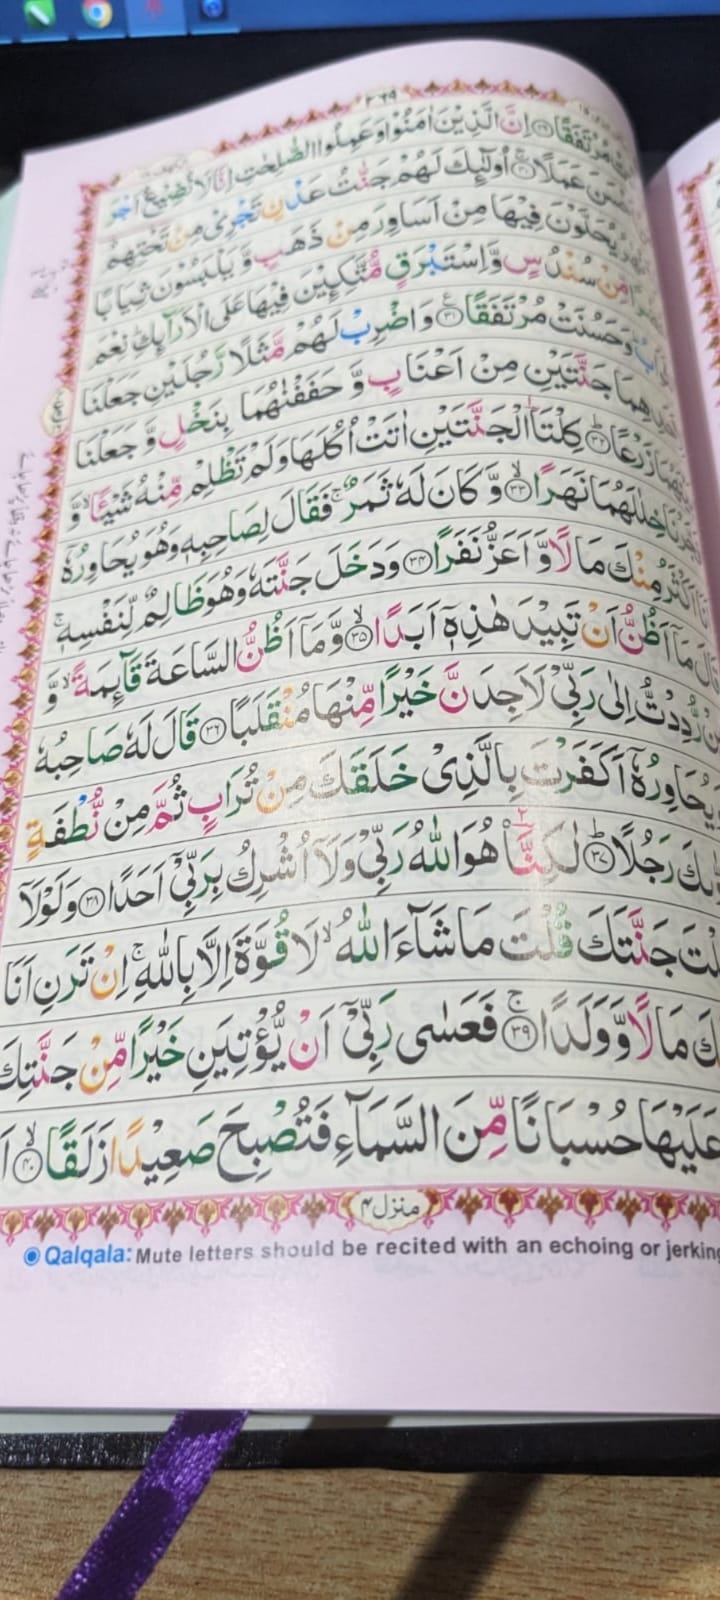 ٣٦٩
مُرْتَفَقًا ﴿٢٩﴾ اِنَّ الَّذِيْنَ اٰمَنُوْا وَعَمِلُوا الصّٰلِحٰتِ اِنَّا لَا نُضِيْعُ اَجْرَ
عَمَلًا ﴿٣٠﴾ اُولٰٓئِكَ لَهُمْ جَنّٰتُ عَدْنٍ تَجْرِيْ مِنْ تَحْتِهِمُ
يُحَلَّوْنَ فِيْهَا مِنْ اَسَاوِرَ مِنْ ذَهَبٍ وَّ يَلْبَسُوْنَ ثِيَابًا
مِّنْ سُنْدُسٍ وَّاِسْتَبْرَقٍ مُّتَّكِـِٕيْنَ فِيْهَا عَلَى الْاَرَآئِكِ ؕ نِعْمَ
وَحَسُنَتْ مُرْتَفَقًا ﴿٣١﴾ وَاضْرِبْ لَهُمْ مَّثَلًا رَّجُلَيْنِ جَعَلْنَا
جَنَّتَيْنِ مِنْ اَعْنَابٍ وَّ حَفَفْنٰهُمَا بِنَخْلٍ وَّ جَعَلْنَا
زَرْعًا ﴿٣٢﴾ كِلْتَا الْجَنَّتَيْنِ اٰتَتْ اُكُلَهَا وَلَمْ تَظْلِمْ مِّنْهُ شَيْـًٔا ۙ وَّ
خِلٰلَهُمَا نَهَرًا ﴿٣٣﴾ وَّ كَانَ لَهٗ ثَمَرٌ ۚ فَقَالَ لِصَاحِبِهٖ وَهُوَ يُحَاوِرُهٗٓ
اَنَا اَكْثَرُ مِنْكَ مَالًا وَّ اَعَزُّ نَفَرًا ﴿٣٤﴾ وَدَخَلَ جَنَّتَهٗ وَهُوَ ظَالِمٌ لِّنَفْسِهٖ ۚ
قَالَ مَآ اَظُنُّ اَنْ تَبِيْدَ هٰذِهٖٓ اَبَدًا ﴿٣٥﴾ وَّمَآ اَظُنُّ السَّاعَةَ قَآئِمَةً ۙ وَّ
رُّدِدْتُّ اِلٰى رَبِّيْ لَاَجِدَنَّ خَيْرًا مِّنْهَا مُنْقَلَبًا ﴿٣٦﴾ قَالَ لَهٗ صَاحِبُهٗ
يُحَاوِرُهٗٓ اَكَفَرْتَ بِالَّذِيْ خَلَقَكَ مِنْ تُرَابٍ ثُمَّ مِنْ نُّطْفَةٍ
رَجُلًا ﴿٣٧﴾ لٰكِنَّا۠ هُوَ اللّٰهُ رَبِّيْ وَلَآ اُشْرِكُ بِرَبِّيْٓ اَحَدًا ﴿٣٨﴾ وَلَوْلَآ
جَنَّتَكَ قُلْتَ مَا شَآءَ اللّٰهُ ۙ لَا قُوَّةَ اِلَّا بِاللّٰهِ ۚ اِنْ تَرَنِ اَنَا
مَالًا وَّوَلَدًا ﴿٣٩﴾ فَعَسٰى رَبِّيْٓ اَنْ يُّؤْتِيَنِ خَيْرًا مِّنْ جَنَّتِكَ
عَلَيْهَا حُسْبَانًا مِّنَ السَّمَآءِ فَتُصْبِحَ صَعِيْدًا زَلَقًا ﴿٤٠﴾
منزل ٤
Qalqala: Mute letters should be recited with an echoing or jerking